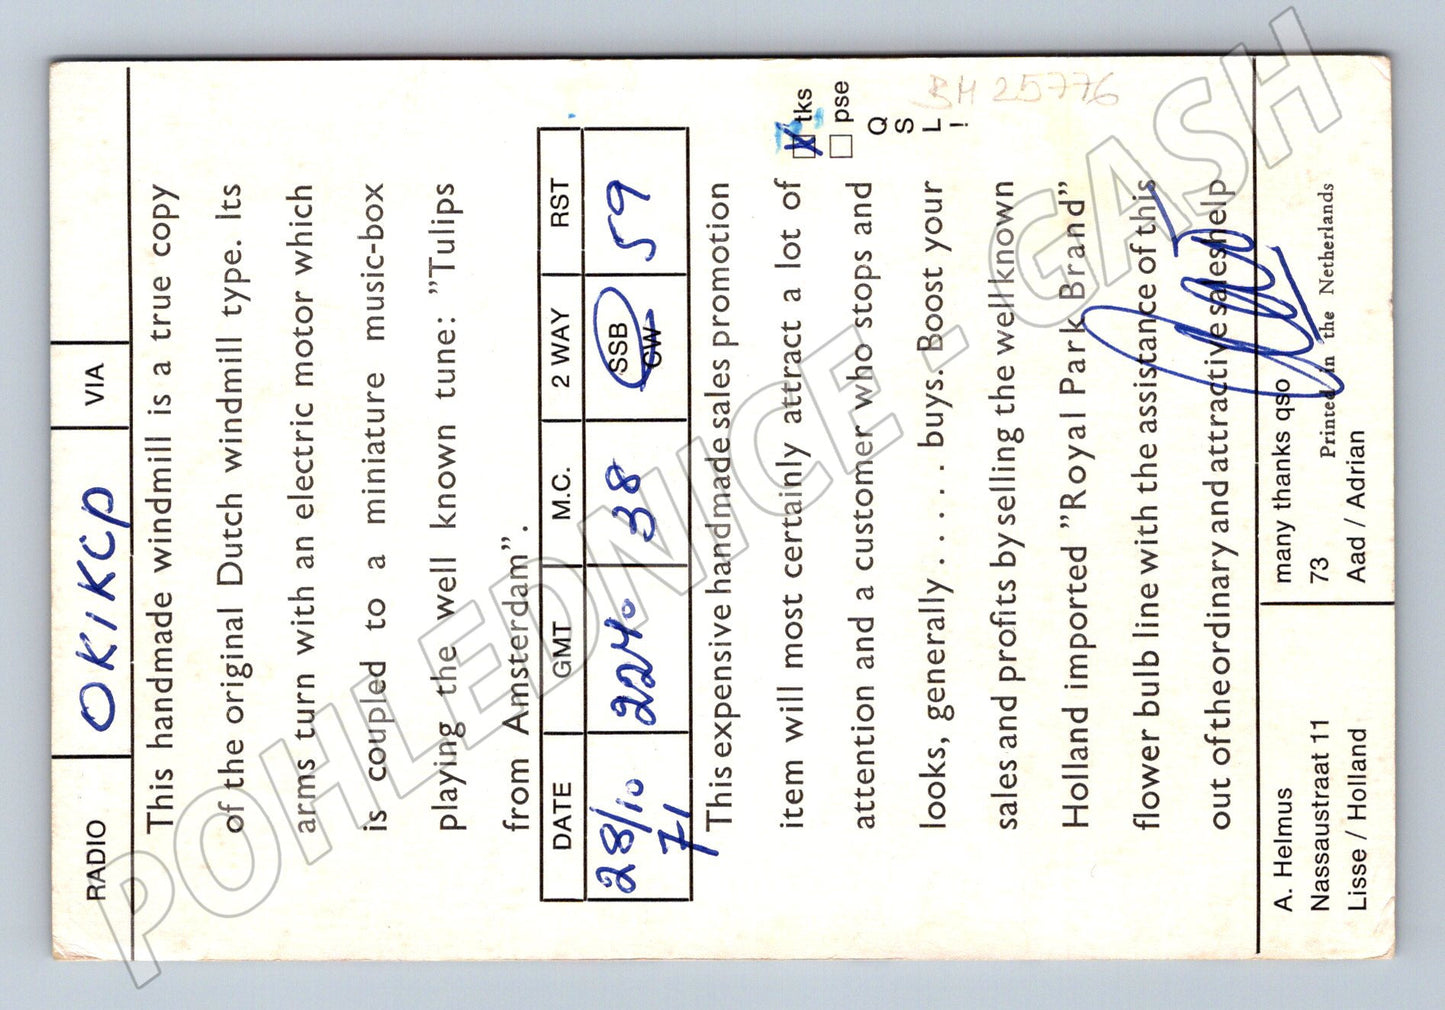 RADIO OK1KCP VIA
This handmade windmill is a true copy
of the original Dutch windmill type. Its
arms turn with an electric motor which
is coupled to a miniature music-box
playing the well known tune: ”Tulips
from Amsterdam”.
DATE GMT M.C. 2 WAY RST
28/10 2240 38 SSB 59
71 CW
This expensive handmade sales promotion
item will most certainly attract a lot of
attention and a customer who stops and
looks, generally . . . . . buys. Boost your
sales and profits by selling the wellknown
Holland imported ”Royal Park Brand”
flower bulb line with the assistance of this
out of the ordinary and attractive saleshelp
tks
pse
Q
S
L
!
BH 25776
A. Helmus
Nassaustraat 11
Lisse / Holland
many thanks qso
73
Aad / Adrian
Printed in the Netherlands
POHLEDNICE - GASH